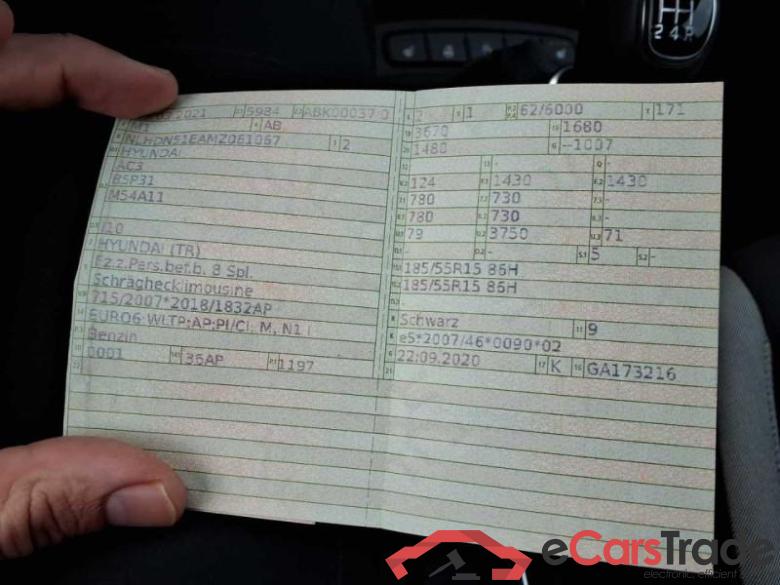 2021 5984 ABK00037 0
M1 AB
NLHDN51EAMZ061067 2
HYUNDAI
AC3
B5P31
M54A11
I10
HYUNDAI (TR)
Fz.z.Pers.bef.b. 8 Spl.
Schräghecklimousine
715/2007*2018/1832AP
EURO6 WLTP;AP;PI/CI, M, N1 I
Benzin
0001 36AP 1197
2 1 62/6000 171
3670 1680
1480 --1007
- -
124 1430 1430
780 730 -
780 730 -
79 3750 71
- 5 -
185/55R15 86H
185/55R15 86H
-
Schwarz 9
e5*2007/46*0090*02
22.09.2020 K GA173216
2 4 R
eCarsTrade
electronic, efficient